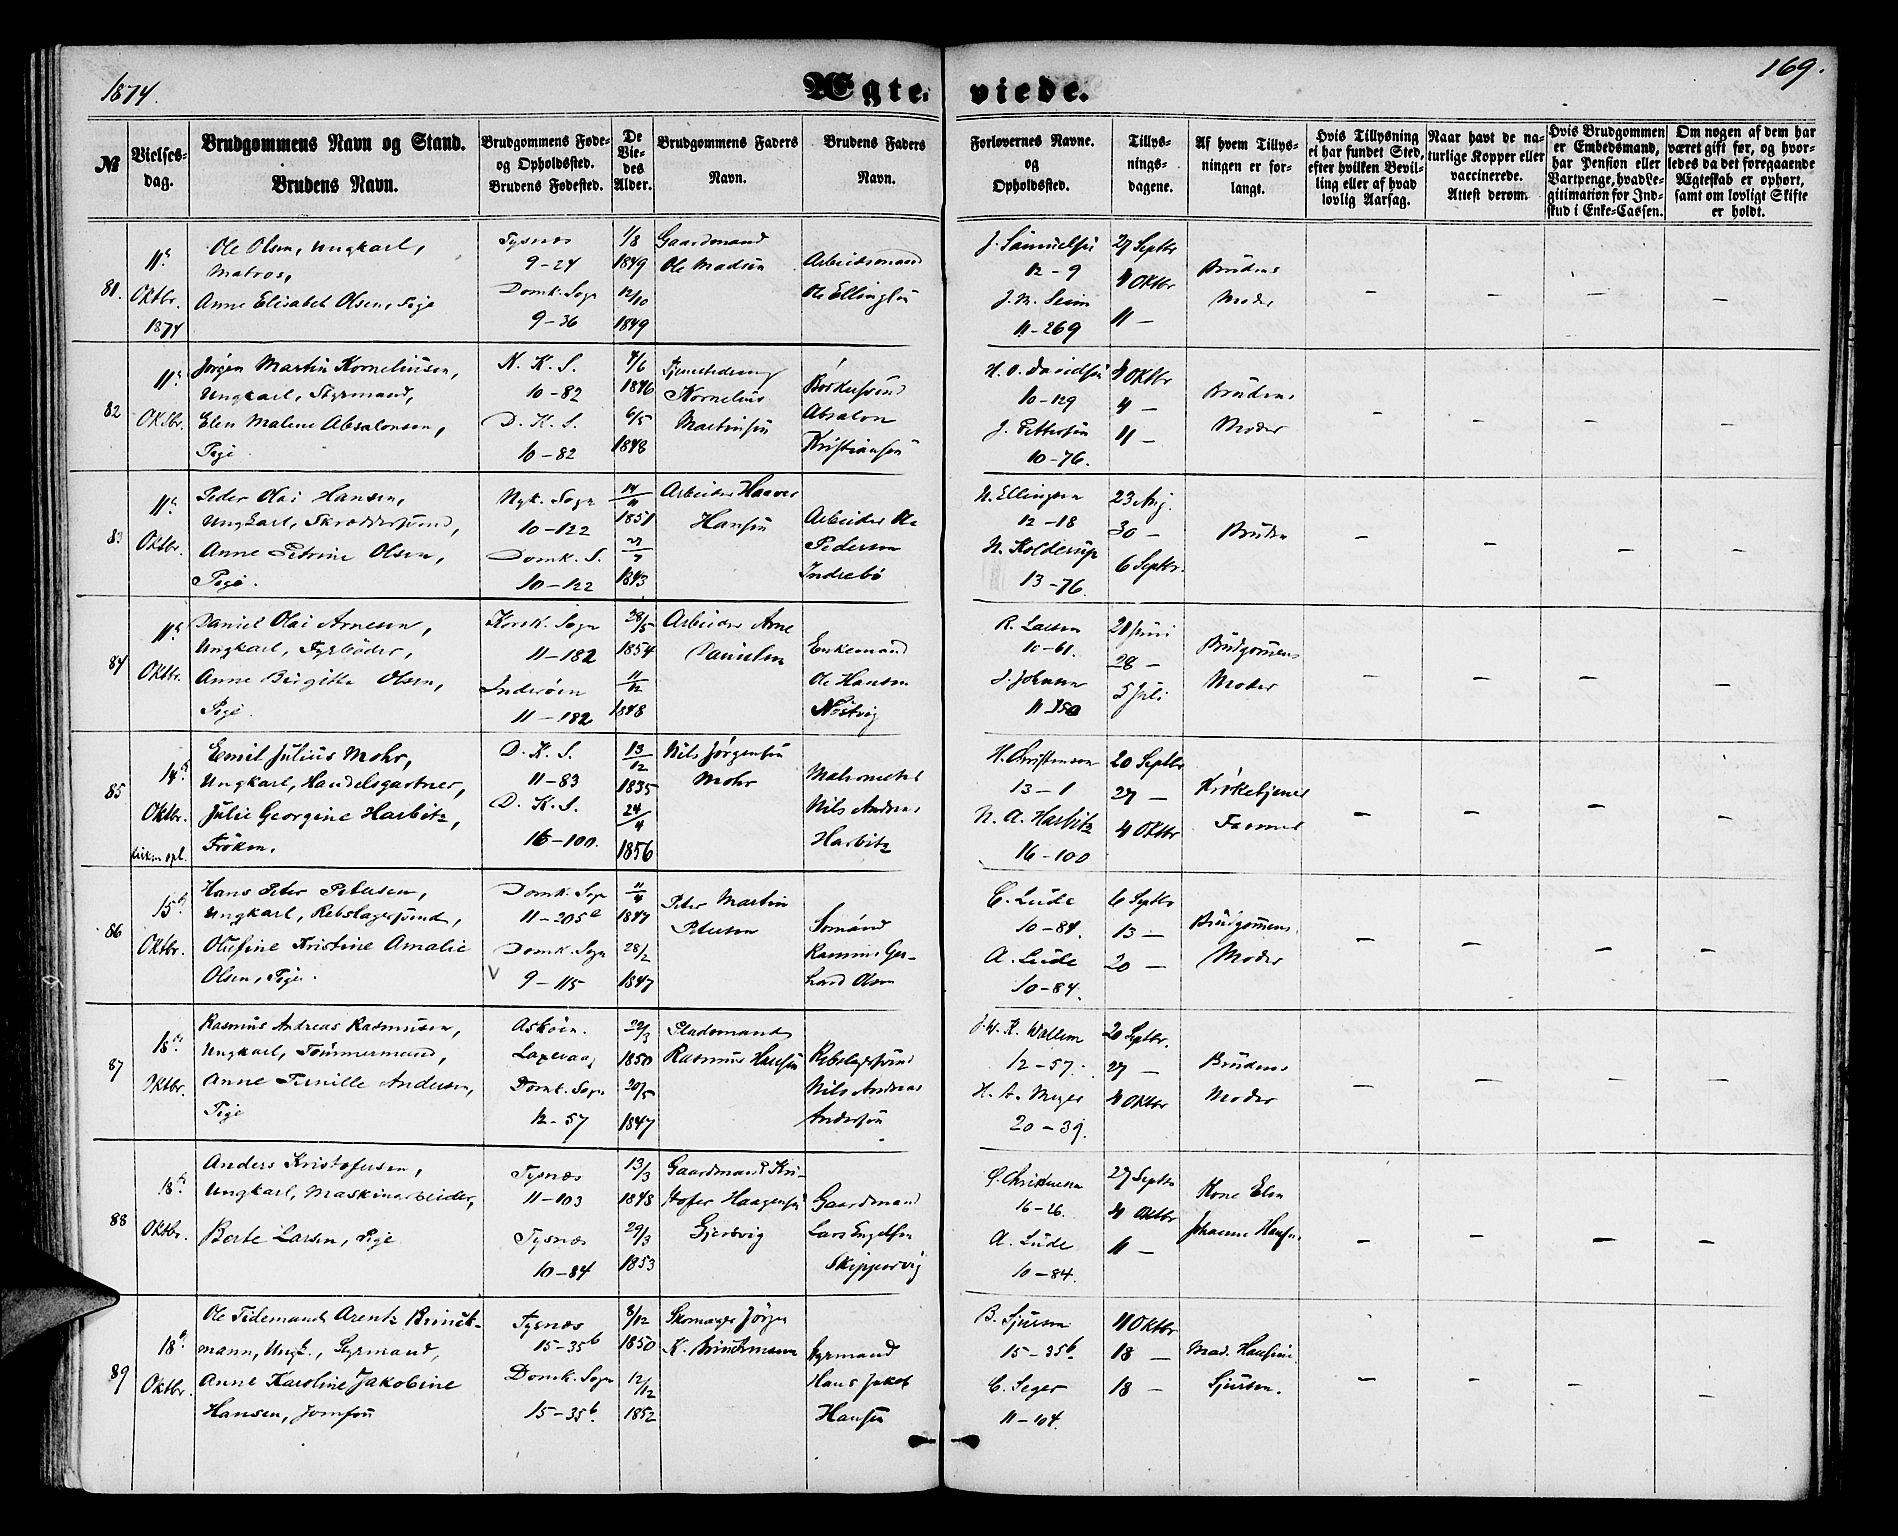 1874.
Ægte-
viede.
169.
№
Vielses-
dag.
Brudgommens Navn og Stand.
Brudens Navn.
Brudgommens Føde-
og Opholdssted.
Brudens Fødested.
De
Vie-
des
Alder.
Brudgommens Faders
Navn.
Brudens Faders
Navn.
Forlovernes Navne.
og
Opholdssted.
Tillys-
nings-
dagene.
Af hvem Tillys-
ningen er for-
langt.
Hvis Tillysning
ei har fundet Sted,
efter hvilken Bevil-
ling eller af hvad
lovlig Aarsag.
Naar havt de na-
turlige Kopper eller
vaccinerede.
Attest derom.
Hvis Brudgommen
er Embedsmand,
har Pension eller
Vartpenge, hvad Le-
gitimation for Ind-
skud i Enke-Cassen.
Om nogen af dem har
været gift før, og hvor-
ledes da det foregaaende
Ægteskab er ophørt,
samt om lovligt Skifte
er holdt.
81.
11te
Oktbr.
1874
Ole Olsen, Ungkarl,
Matros,
Anne Elisabet Olsen, Pige
Tysnæs
9-24
Domk. Sogn
9-36
1/8
1849
12/10
1849
Gaardmand
Ole Madsen
Arbeidsmand
Ole Ellingsen
J. Samuelsen
12-9
J. M. Seim
11-269
27 Septbr
4 Oktbr
11 —
Brudens
Moder
82
11te
Oktbr.
Jørgen Martin Korneliusen,
Ungkarl, Styrmand,
Elen Malene Absalonsen,
Pige
N. K. S.
10-82
D. K. S.
10-82
4/6
1846
6/5
1848
Kornelius
Martinsen
Absalon
Kristiansen
H. O. Davidsen
10-129
J. Pettersen
10-76.
4 —
11 —
Brudens
Moder
83
11te
Oktbr.
Peder Olai Hansen,
Ungkarl, Skræddersvend,
Anne Petrine Olsen,
Pige.
Nyk. Sogn
10-122
Domk. S.
10-122
1851
1843
Arbeider Haaver
Hansen
Arbeider Ole
Pedersen
Indrebø
N. Ellingsen
12-18
N. Kolderup
13-76.
23 Aug.
30 —
6 Septbr.
Bruden
84
11te
Oktbr.
Daniel Olai Arnesen,
Ungkarl, Fyrbøder,
Anne Birgitte Olsen,
Pige.
Korsk. Sogn
11-182
Inderøen
11-182
28/5
1854
11/12
1848
Arbeider Arne
Danielsen
Enkemand
Ole Hansen
Nøstvig
R. Larsen
10-61.
J. Johnsen
11-150
21 Juni
28 —
5 Juli
Brudgommens
Moder
85
14de
Oktbr.
Emil Julius Mohr,
Ungkarl, Handelsgartner,
Julie Georgine Harbitz,
Frøken.
D. K. S.
11-83
D. K. S.
16-100.
13/12
1835
24/4
1856
Nils Jørgensen
Mohr
Nils Andreas
Harbitz
H. Christensen
13-1
N. A. Harbitz
16-100
20 Septbr
27 —
4 Oktbr
Kirketjener
86
15de
Oktbr.
Hans Peter Petersen,
Ungkarl, Rebslagersvend,
Olufine Kristine Amalie
Olsen, Pige.
Domk. Sogn
11-205a
Domk. Sogn
V 9-115
11/4
1847
28/2
1847
Peter Martin
Petersen
Sømand
Rasmus Ger-
hard Olsen
C. Lude
10-84.
A. Lude
10-84.
6 Septbr
13 —
20 —
Brudgommens
Moder
87
18de
Oktbr.
Rasmus Andreas Rasmussen,
Ungkarl, Tømmermand,
Anne Pernille Andersen,
Pige
Askøen.
Laxevaag
Domk. Sogn
12-57
22/3
1850
20/5
1847
Pladsmand
Rasmus Hansen
Rebslagersvend
Nils Andreas
Andersen
J. W. K. Wallem
12-57.
H. A. Meyer
20-39.
20 Septbr.
27 —
4 Oktbr
Brudens
Moder
88
18de
Oktbr.
Anders Kristofersen,
Ungkarl, Maskinarbeider,
Berte Larsen, Pige
Tysnæs
11-103
Tysnæs
10-84
13/3
1848
29/3
1853
Gaardmand Kri-
stofer Haagensen
Gjersvig
Gaardmand
Lars Engelsen
Skippervig
C. Christensen
16-26.
A. Lude
10-84.
27 Septbr
4 Oktbr
11 —
Kone Elen
Johanne Hansen.
89
18de
Oktbr.
Ole Tidemand Arentz Brinck-
mann, Ungk., Styrmand,
Anne Karoline Jakobine
Hansen, Jomfru
Tysnæs
15-35b
Domk. Sogn
15-35b.
8/12
1850
12/12
1852
Skomager Jørgen
K. Brinckmann
Styrmand
Hans Jakob
Hansen
B. Sjursen
15-35b.
C. Seger
11-104.
11 Oktbr
18 —
18 —
Mad. Hansine
Sjursen.